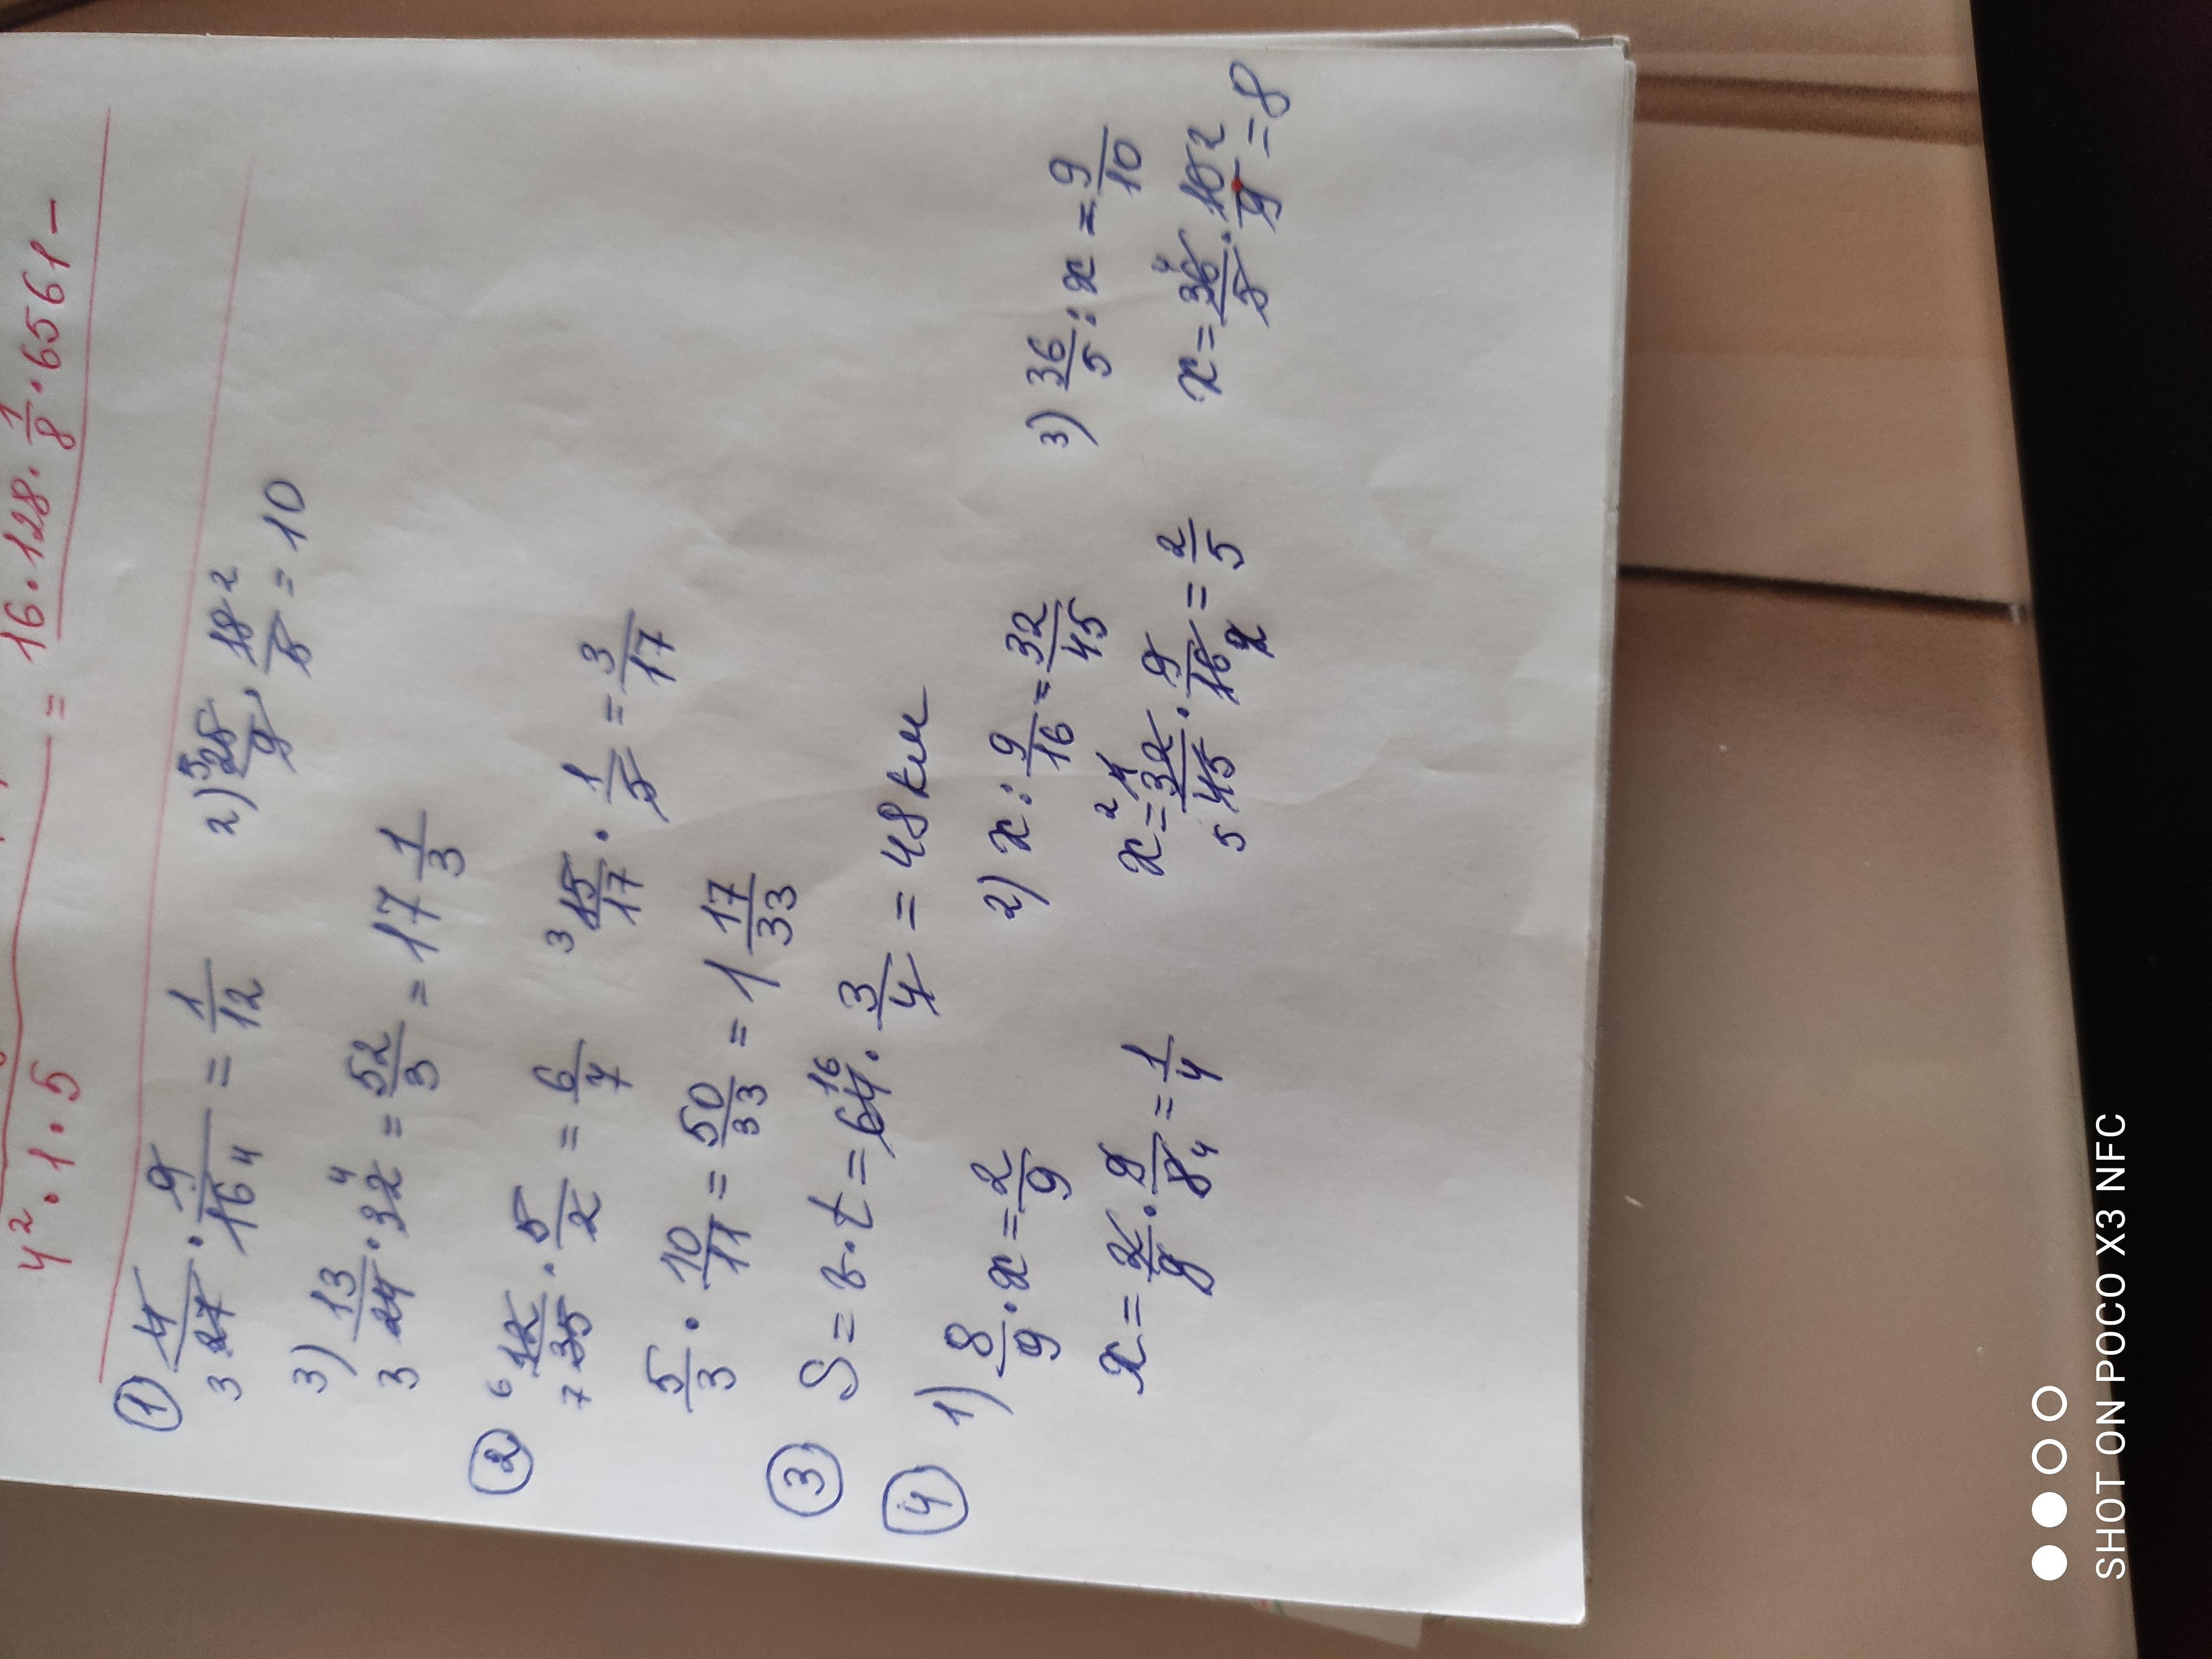 4² · 1 · 5 = 16 · 128 · 1/8 · 6561 –
① 4/27 · 9/16 = 1/12 2) 25/9 · 18/5 = 10
3) 13/24 · 32 = 52/3 = 17 1/3
② 12/35 · 5/2 = 6/7 15/17 · 1/5 = 3/17
5/3 · 10/11 = 50/33 = 1 17/33
③ S = v · t = 64 · 3/4 = 48 км
④ 1) 8/9 · x = 2/9 2) x : 9/16 = 32/45 3) 36/5 : x = 9/10
x = 2/9 · 9/8 = 1/4 x = 32/45 · 9/16 = 2/5 x = 36/5 · 10/9 = 8
SHOT ON POCO X3 NFC